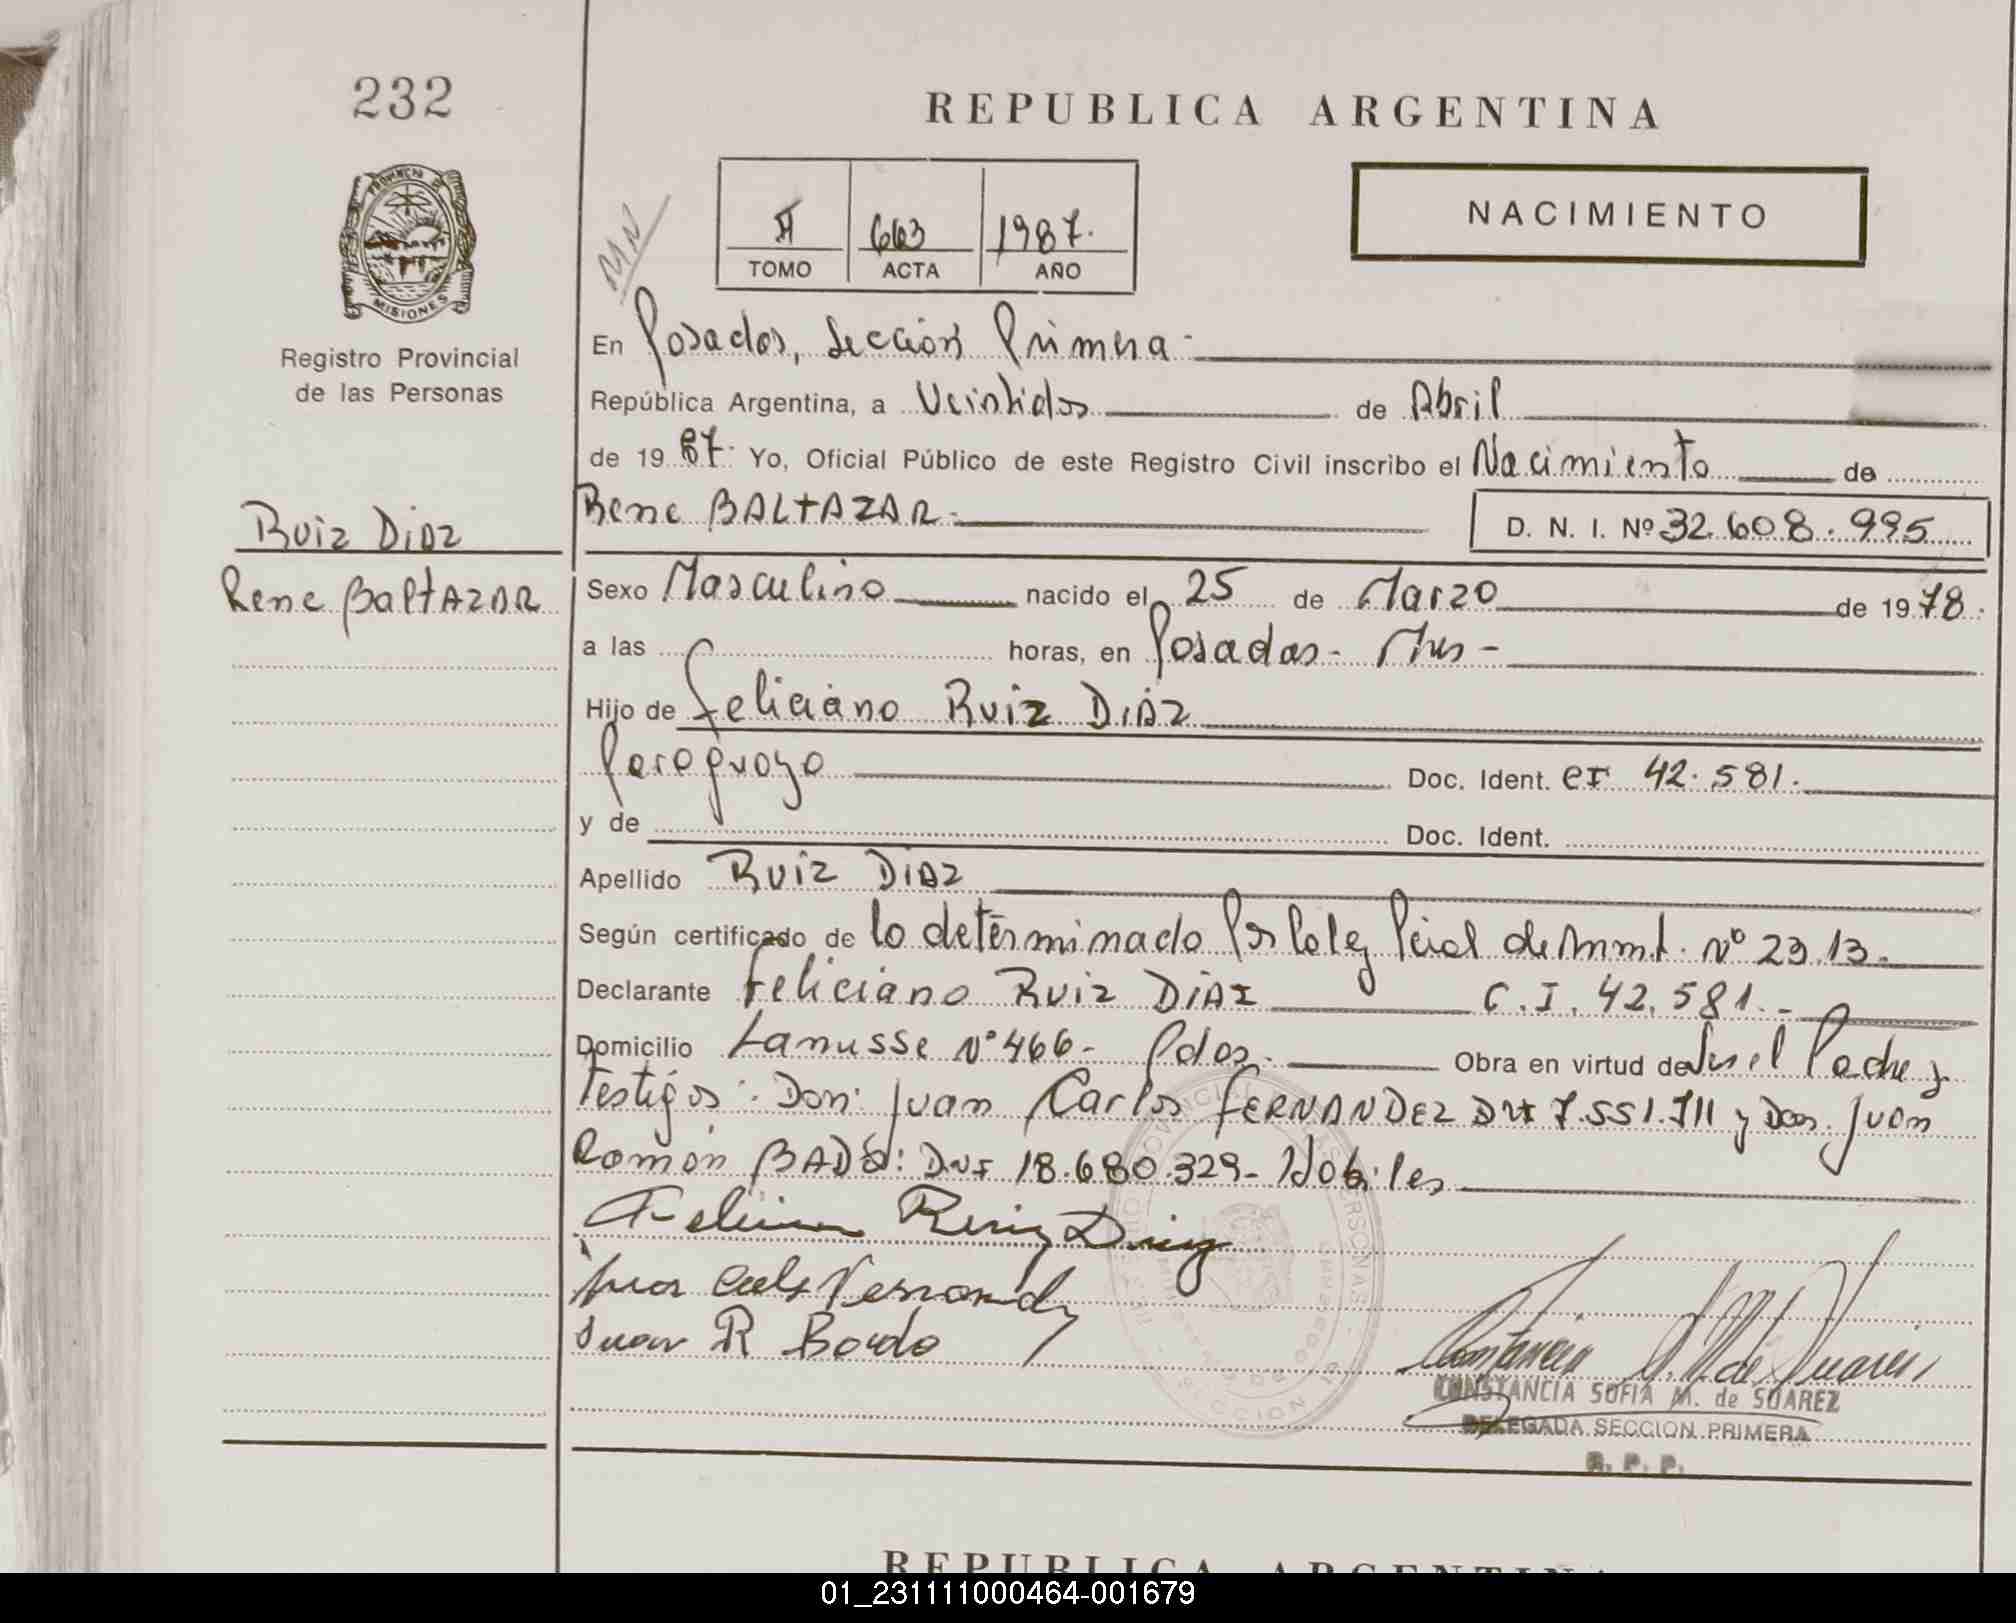 232
REPUBLICA ARGENTINA
PROVINCIA DE
MISIONES
Registro Provincial
de las Personas
NACIMIENTO
MN
663 1987.
TOMO ACTA AÑO
En Posadas, Sección Primera-
República Argentina, a Veintidos de Abril
de 1987. Yo, Oficial Público de este Registro Civil inscribo el Nacimiento de
Rene BALTAZAR.
D. N. I. Nº 32.608.995
Ruiz Diaz
Rene BaltAZAR
Sexo Masculino nacido el 25 de Marzo de 1978.
a las horas, en Posadas- Mnes-
Hijo de Feliciano Ruiz Diaz
Paraguayo Doc. Ident. CI 42.581.
y de Doc. Ident.
Apellido Ruiz Diaz
Según certificado de lo determinado Por la ley Pcial de Amnt. Nº 2313.
Declarante Feliciano Ruiz Diaz C.I. 42.581.-
Domicilio Lanusse Nº 466- Pdas. Obra en virtud de Ser el Padre y
Testigos: Don: Juan Carlos FERNANDEZ DNI 7.551.711 y Don. Juan
Ramón BADO: DNI 18.680.329- Habiles
Feliciano Ruiz Diaz
Juan Carlos Fernandez
Juan R Bado
Constancia S. M. de Suarez
CONSTANCIA SOFIA M. de SUAREZ
DELEGADA SECCION PRIMERA
R. P. P.
REPUBLICA ARGENTINA
01_231111000464-001679